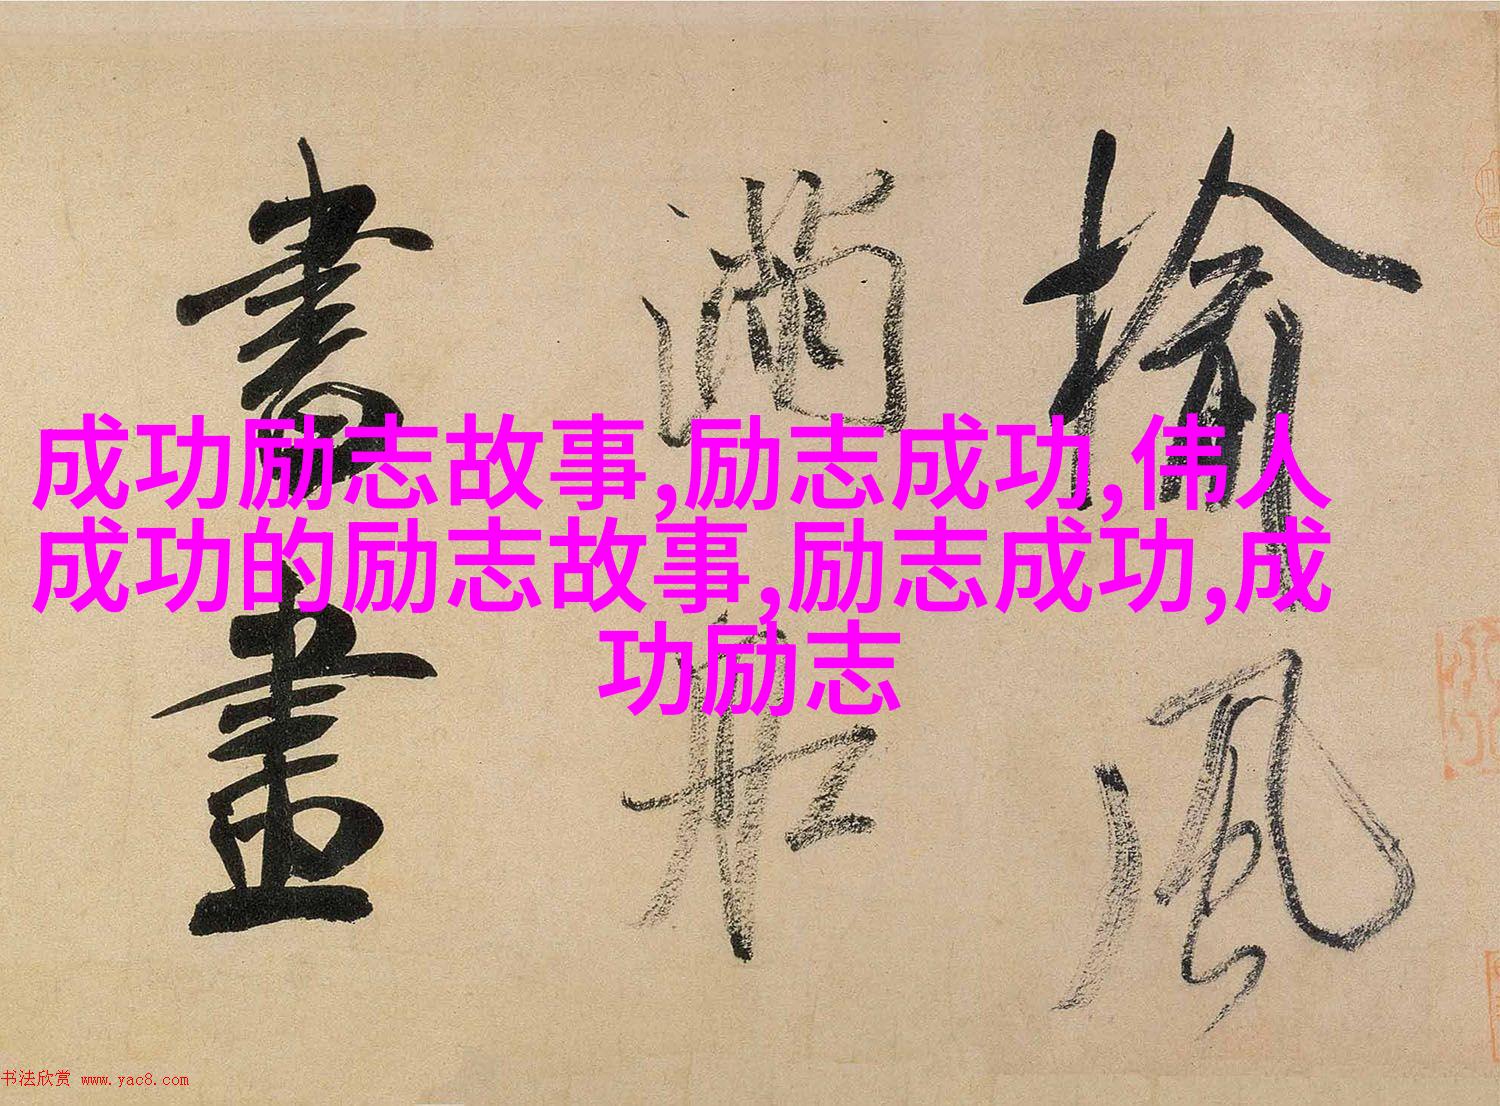 揄風
滿船
書畫
成功励志故事,励志成功,伟人
成功的励志故事,励志成功,成
功励志
书法欣赏 www.yac8.com